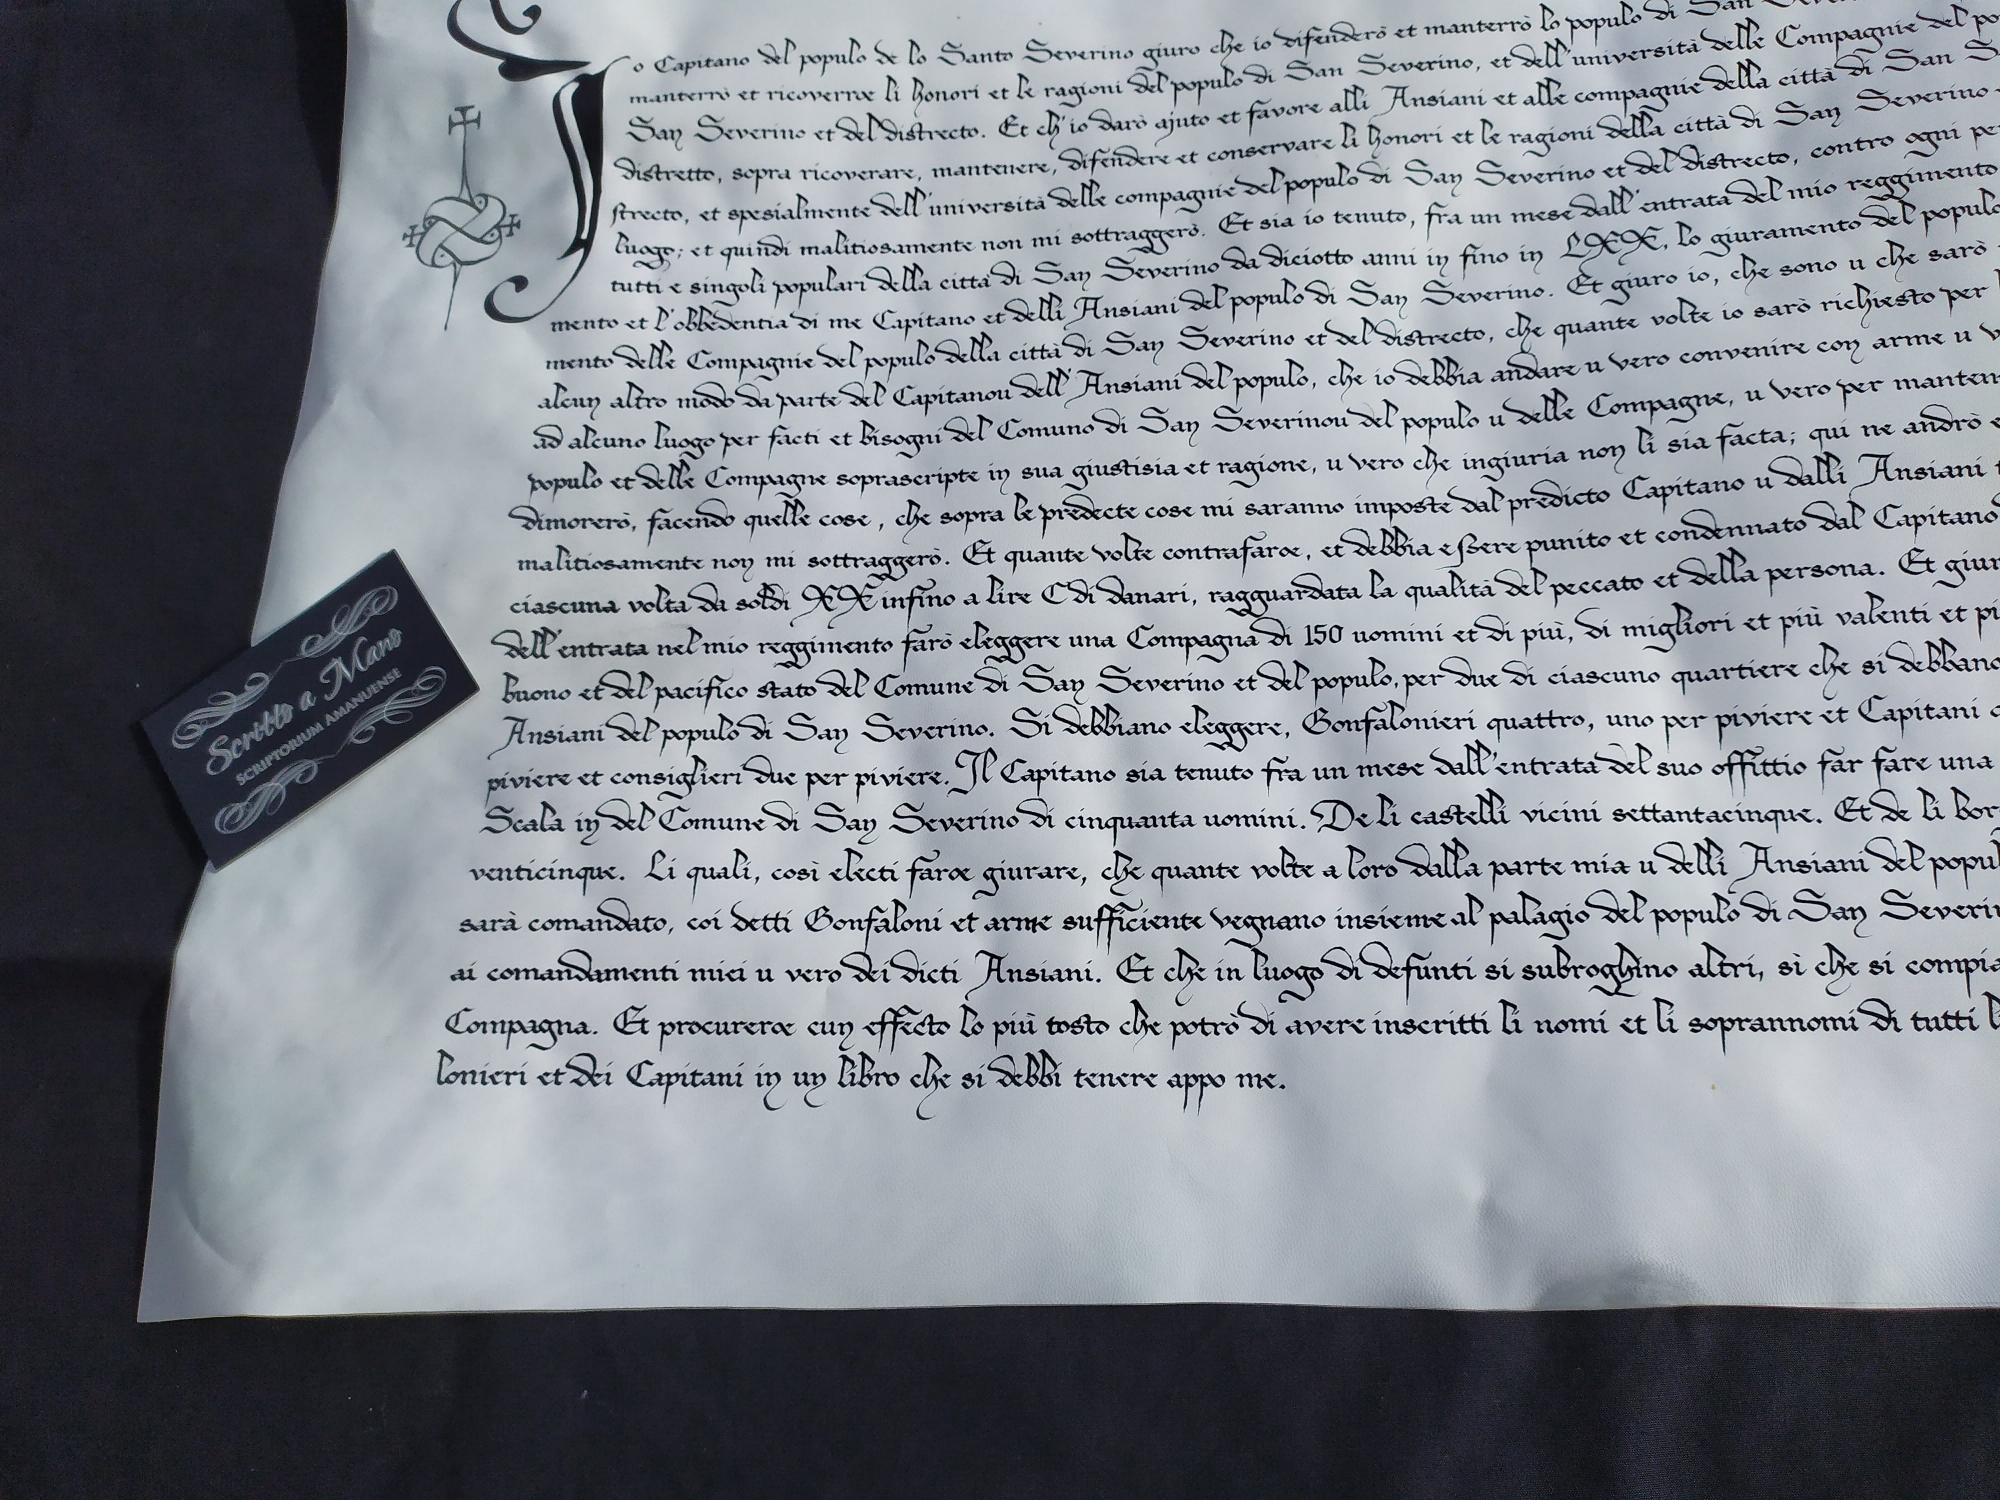 Io Capitano del populo de lo Santo Severino giuro che io difenderò et manterrò lo populo di San
manterrò et ricoverrœ li honori et le ragioni del populo di San Severino, et dell'università delle Compagnie del
San Severino et del distrecto. Et ch'io darò ajuto et favore alli Ansiani et alle compagnie della città di San
distretto, sopra ricoverare, mantenere, difendere et conservare li honori et le ragioni della città di San Severino
strecto, et spesialmente dell'università delle compagnie del populo di San Severino et del distrecto, contro ogni
luogo; et quindi malitiosamente non mi sottraggerò. Et sia io tenuto, fra un mese dall'entrata del mio reggimento
tutti e singoli populari della città di San Severino da diciotto anni in fino in LXX, lo giuramento del populo
mento et l'obbedentia di me Capitano et delli Ansiani del populo di San Severino. Et giuro io, che sono u che sarò
mento delle Compagnie del populo della città di San Severino et del distrecto, che quante volte io sarò richiesto per
alcun altro modo da parte del Capitanou dell'Ansiani del populo, che io debbia andare u vero convenire con arme u
ad alcuno luogo per facti et bisogni del Comuno di San Severinou del populo u delle Compagne, u vero per
populo et delle Compagne soprascripte in sua giustisia et ragione, u vero che ingiuria non li sia facta; qui ne andrò
dimorerò, facendo quelle cose, che sopra le predecte cose mi saranno imposte dal predicto Capitano u dalli Ansiani
malitiosamente non mi sottraggerò. Et quante volte contrafarœ, et debbia essere punito et condennato dal Capitano
ciascuna volta da soldi XX infino a lire C di danari, ragguardata la qualità del peccato et della persona. Et
dell'entrata nel mio reggimento farò eleggere una Compagna di 150 uomini et di più, di migliori et più valenti et
buono et del pacifico stato del Comune di San Severino et del populo, per due di ciascuno quartiere che si debbano
Ansiani del populo di San Severino. Si debbiano eleggere, Gonfalonieri quattro, uno per piviere et Capitani
piviere et consiglieri due per piviere. Il Capitano sia tenuto fra un mese dall'entrata del suo offittio far fare una
Scala in del Comune di San Severino di cinquanta uomini. De li castelli vicini settantacinque. Et de li
venticinque. Li quali, così electi farœ giurare, che quante volte a loro dalla parte mia u delli Ansiani del
sarà comandato, coi detti Gonfaloni et arme sufficiente vegnano insieme al palagio del populo di San
ai comandamenti miei u vero dei dicti Ansiani. Et che in luogo di defunti si subroghino altri, sì che si
Compagna. Et procurerœ cun effecto lo più tosto che potrò di avere inscritti li nomi et li soprannomi di tutti
lonieri et dei Capitani in un libro che si debbi tenere appo me.
Scritto a Mano
SCRIPTORIUM AMANUENSE